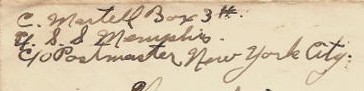 C. Martell Box 3 H.
U. S. S Memphis.
C/o Postmaster, New York City.